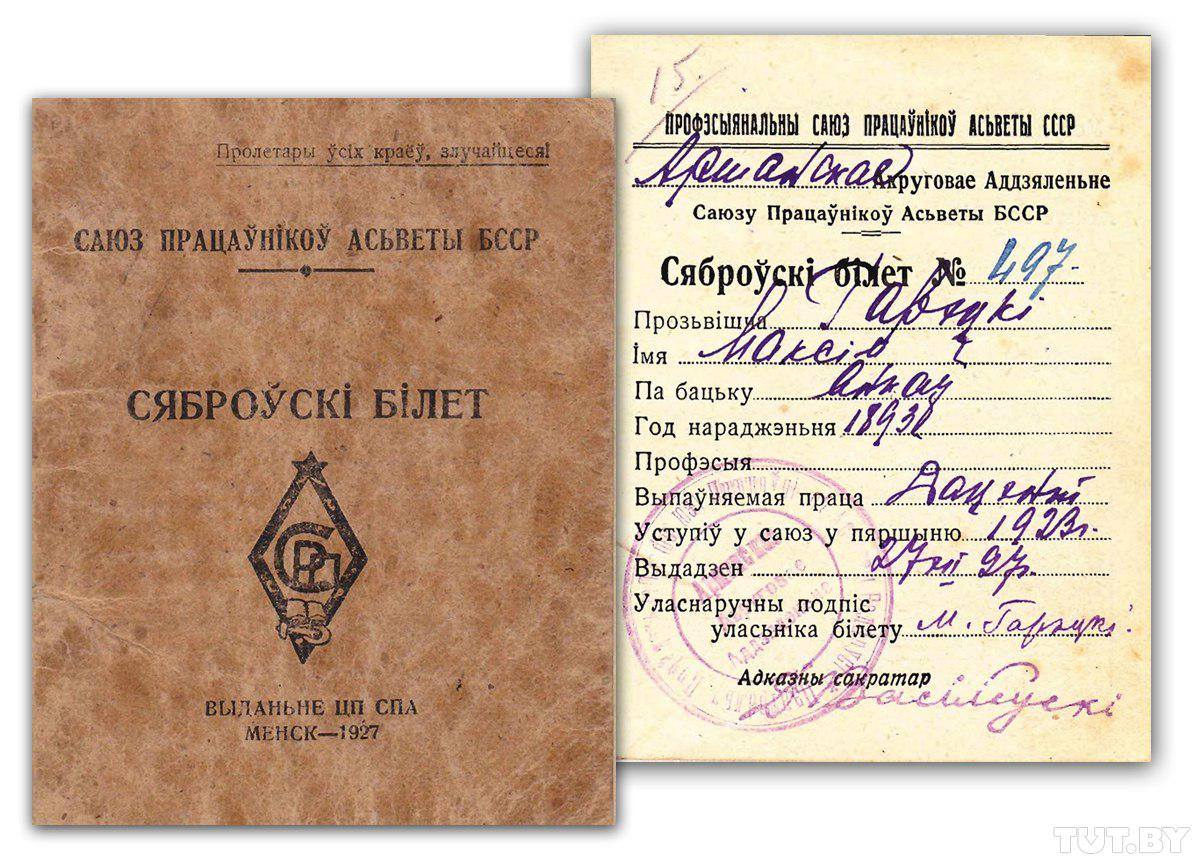 Пролетары ўсіх краёў, злучайцеся!
САЮЗ ПРАЦАЎНІКОЎ АСЬВЕТЫ БССР
СЯБРОЎСКІ БІЛЕТ
ВЫДАНЬНЕ ЦП СПА
МЕНСК—1927
15.
ПРОФЭСЫЯНАЛЬНЫ САЮЗ ПРАЦАЎНІКОЎ АСЬВЕТЫ СССР
Аршанскае Акруговае Аддзяленьне
Саюзу Працаўнікоў Асьветы БССР
Сяброўскі білет № 497
Прозьвішча Гарэцкі
Імя Максім
Па бацьку
Год нараджэньня 1893
Профэсыя
Выпаўняемая праца Дацэнт
Уступіў у саюз у пяршыню 1923 г.
Выдадзен 27 XII 27 г.
Уласнаручны подпіс
уласьніка білету М. Гарэцкі.
Адказны сакратар
TUT.BY